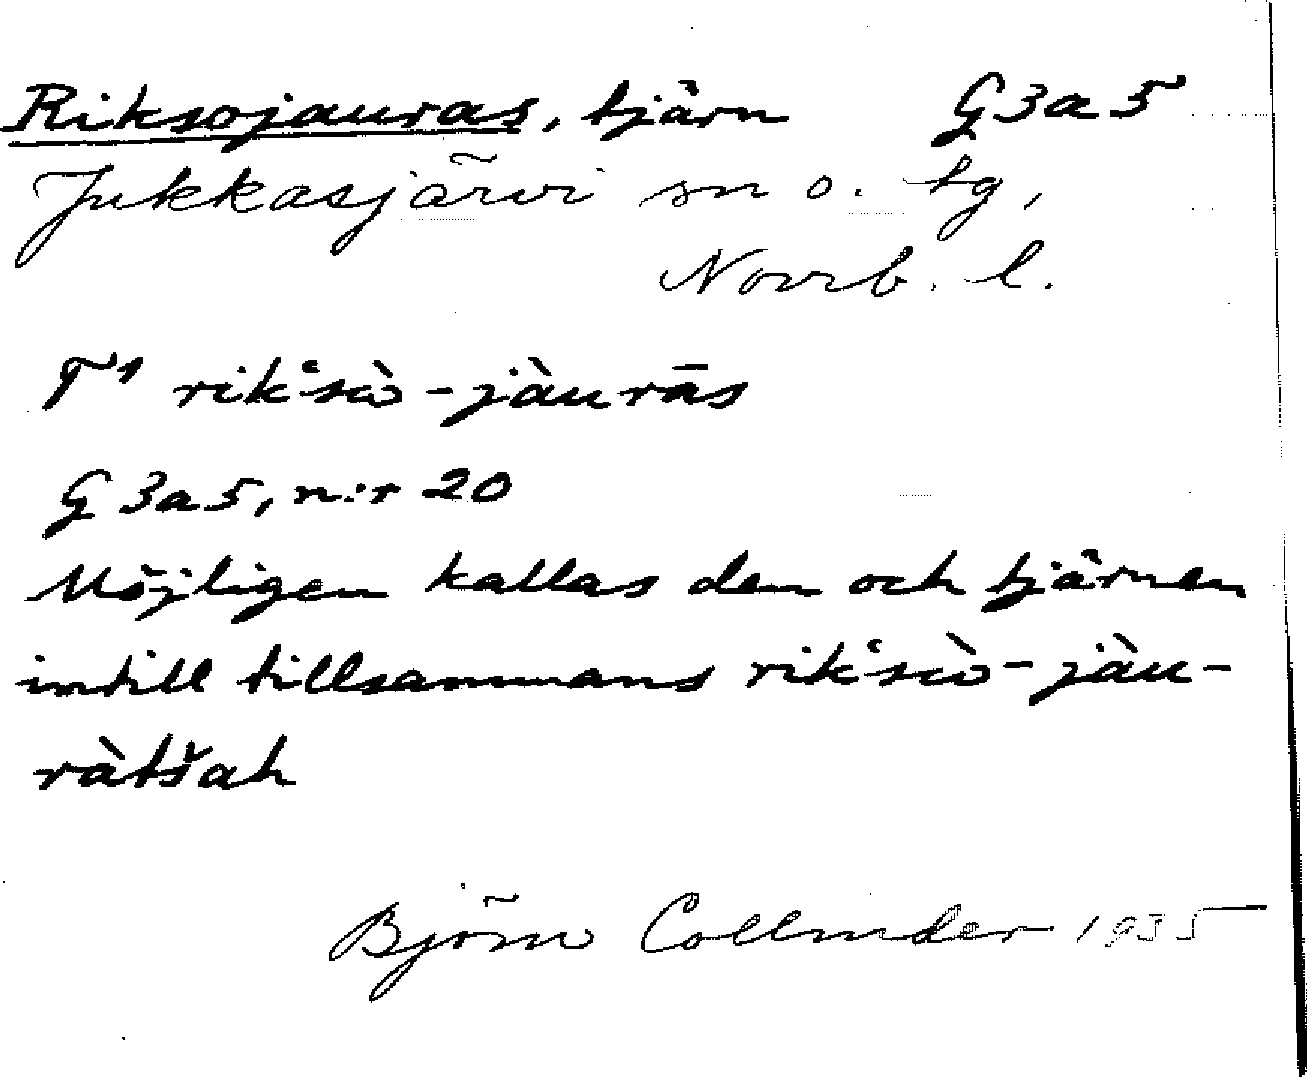 Riksojauras, tjärn G3a5
Jukkasjärvi sn o. tg,
Norrb. l.
T¹ rik͑sò-jàurās
G3a5, n:r 20
Möjligen kallas den och tjärnen
intill tillsammans rik͑sò-jàu-
ràtšah
Björn Collinder 1935